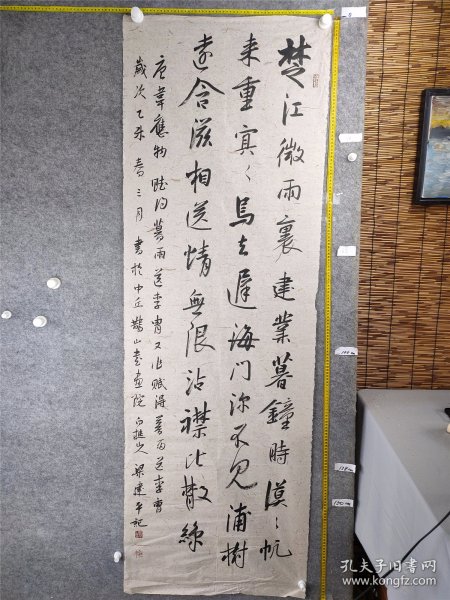 楚江微雨裏建業暮鐘時漠〻帆
来重冥〻鳥去遲海门深不见浦樹
遠含滋相送情無限沾襟比散絲
唐韋應物賦得暮雨送李胄又作賦得暮雨送李曹
歲次乙未春三月書於中丘鵲山書畫院 梁建平記
孔夫子旧书网
www.kongfz.com